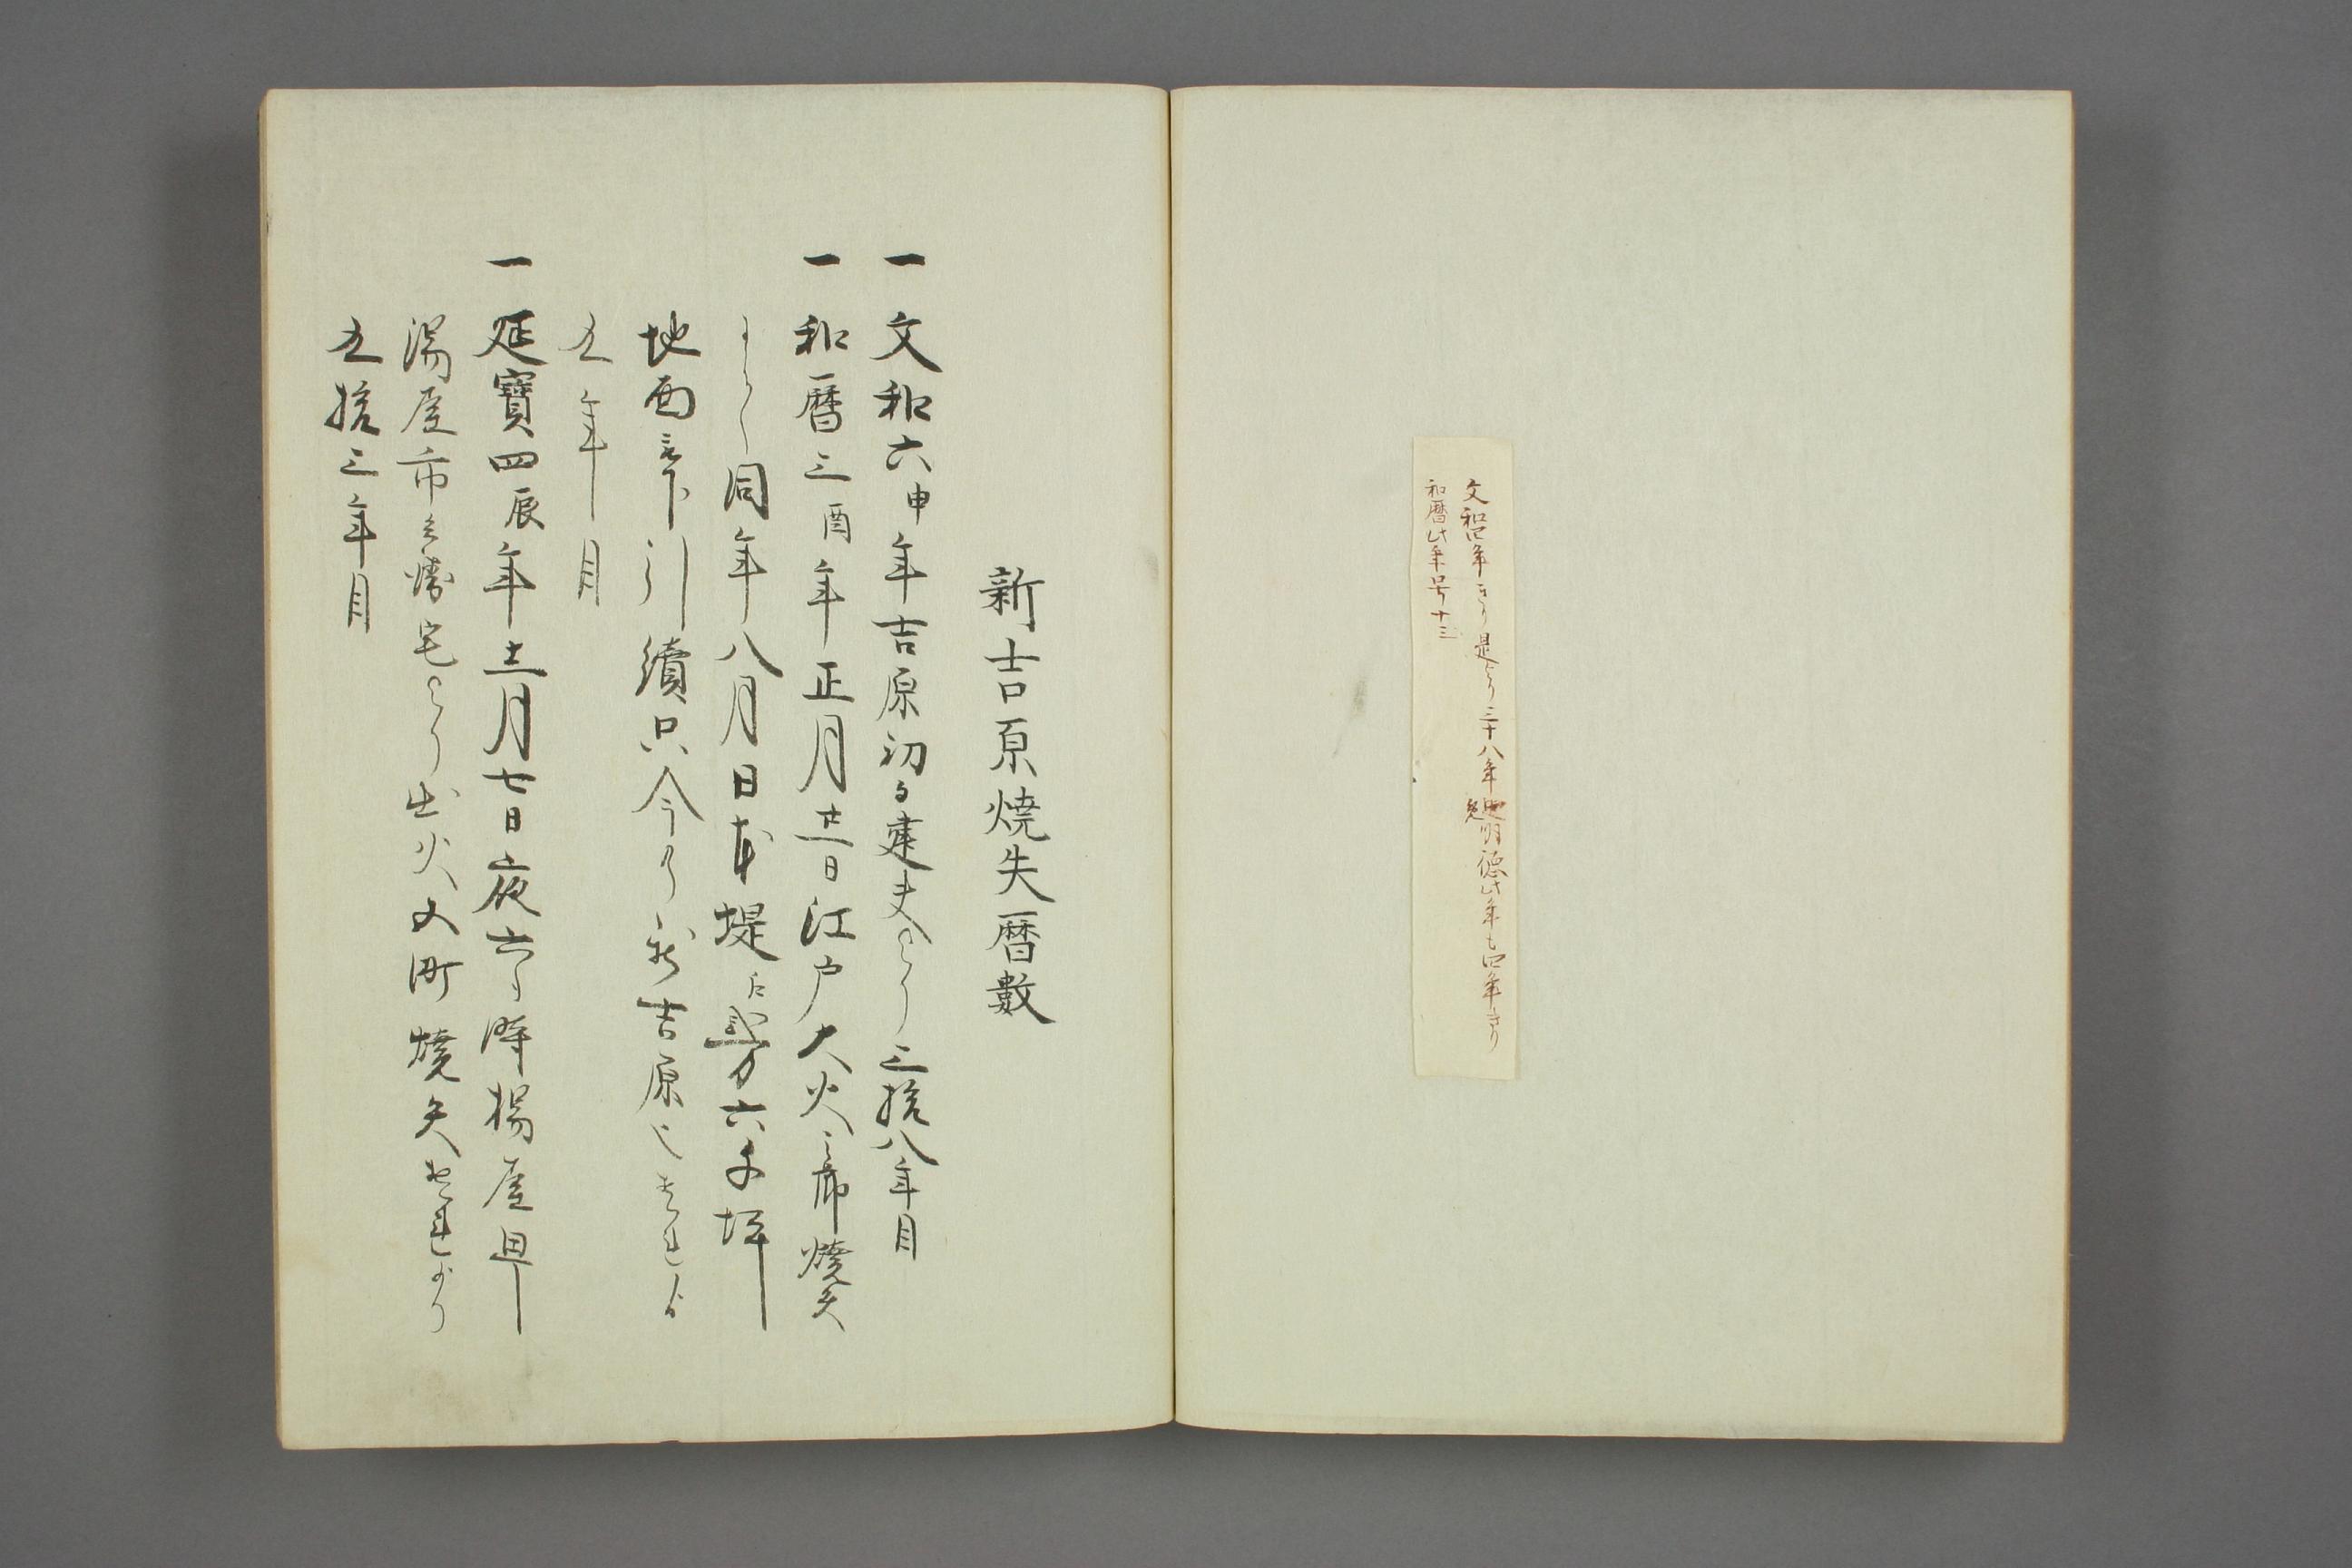 文和四年きり是より三十八年
明徳此年も四年きり
和暦此年号十三
新吉原焼失暦數
一文和六申年吉原初る建夫より三拾八年目
一和暦三酉年正月廿二日江戸大火之節焼失
同年八月日本堤江弐万六千坪
地面被下引續只今の新吉原也それよ
五年目
一延寶四辰年十二月七日夜六ツ時揚屋町
湯屋市兵衛宅より出火五町焼失それより
五拾三年目